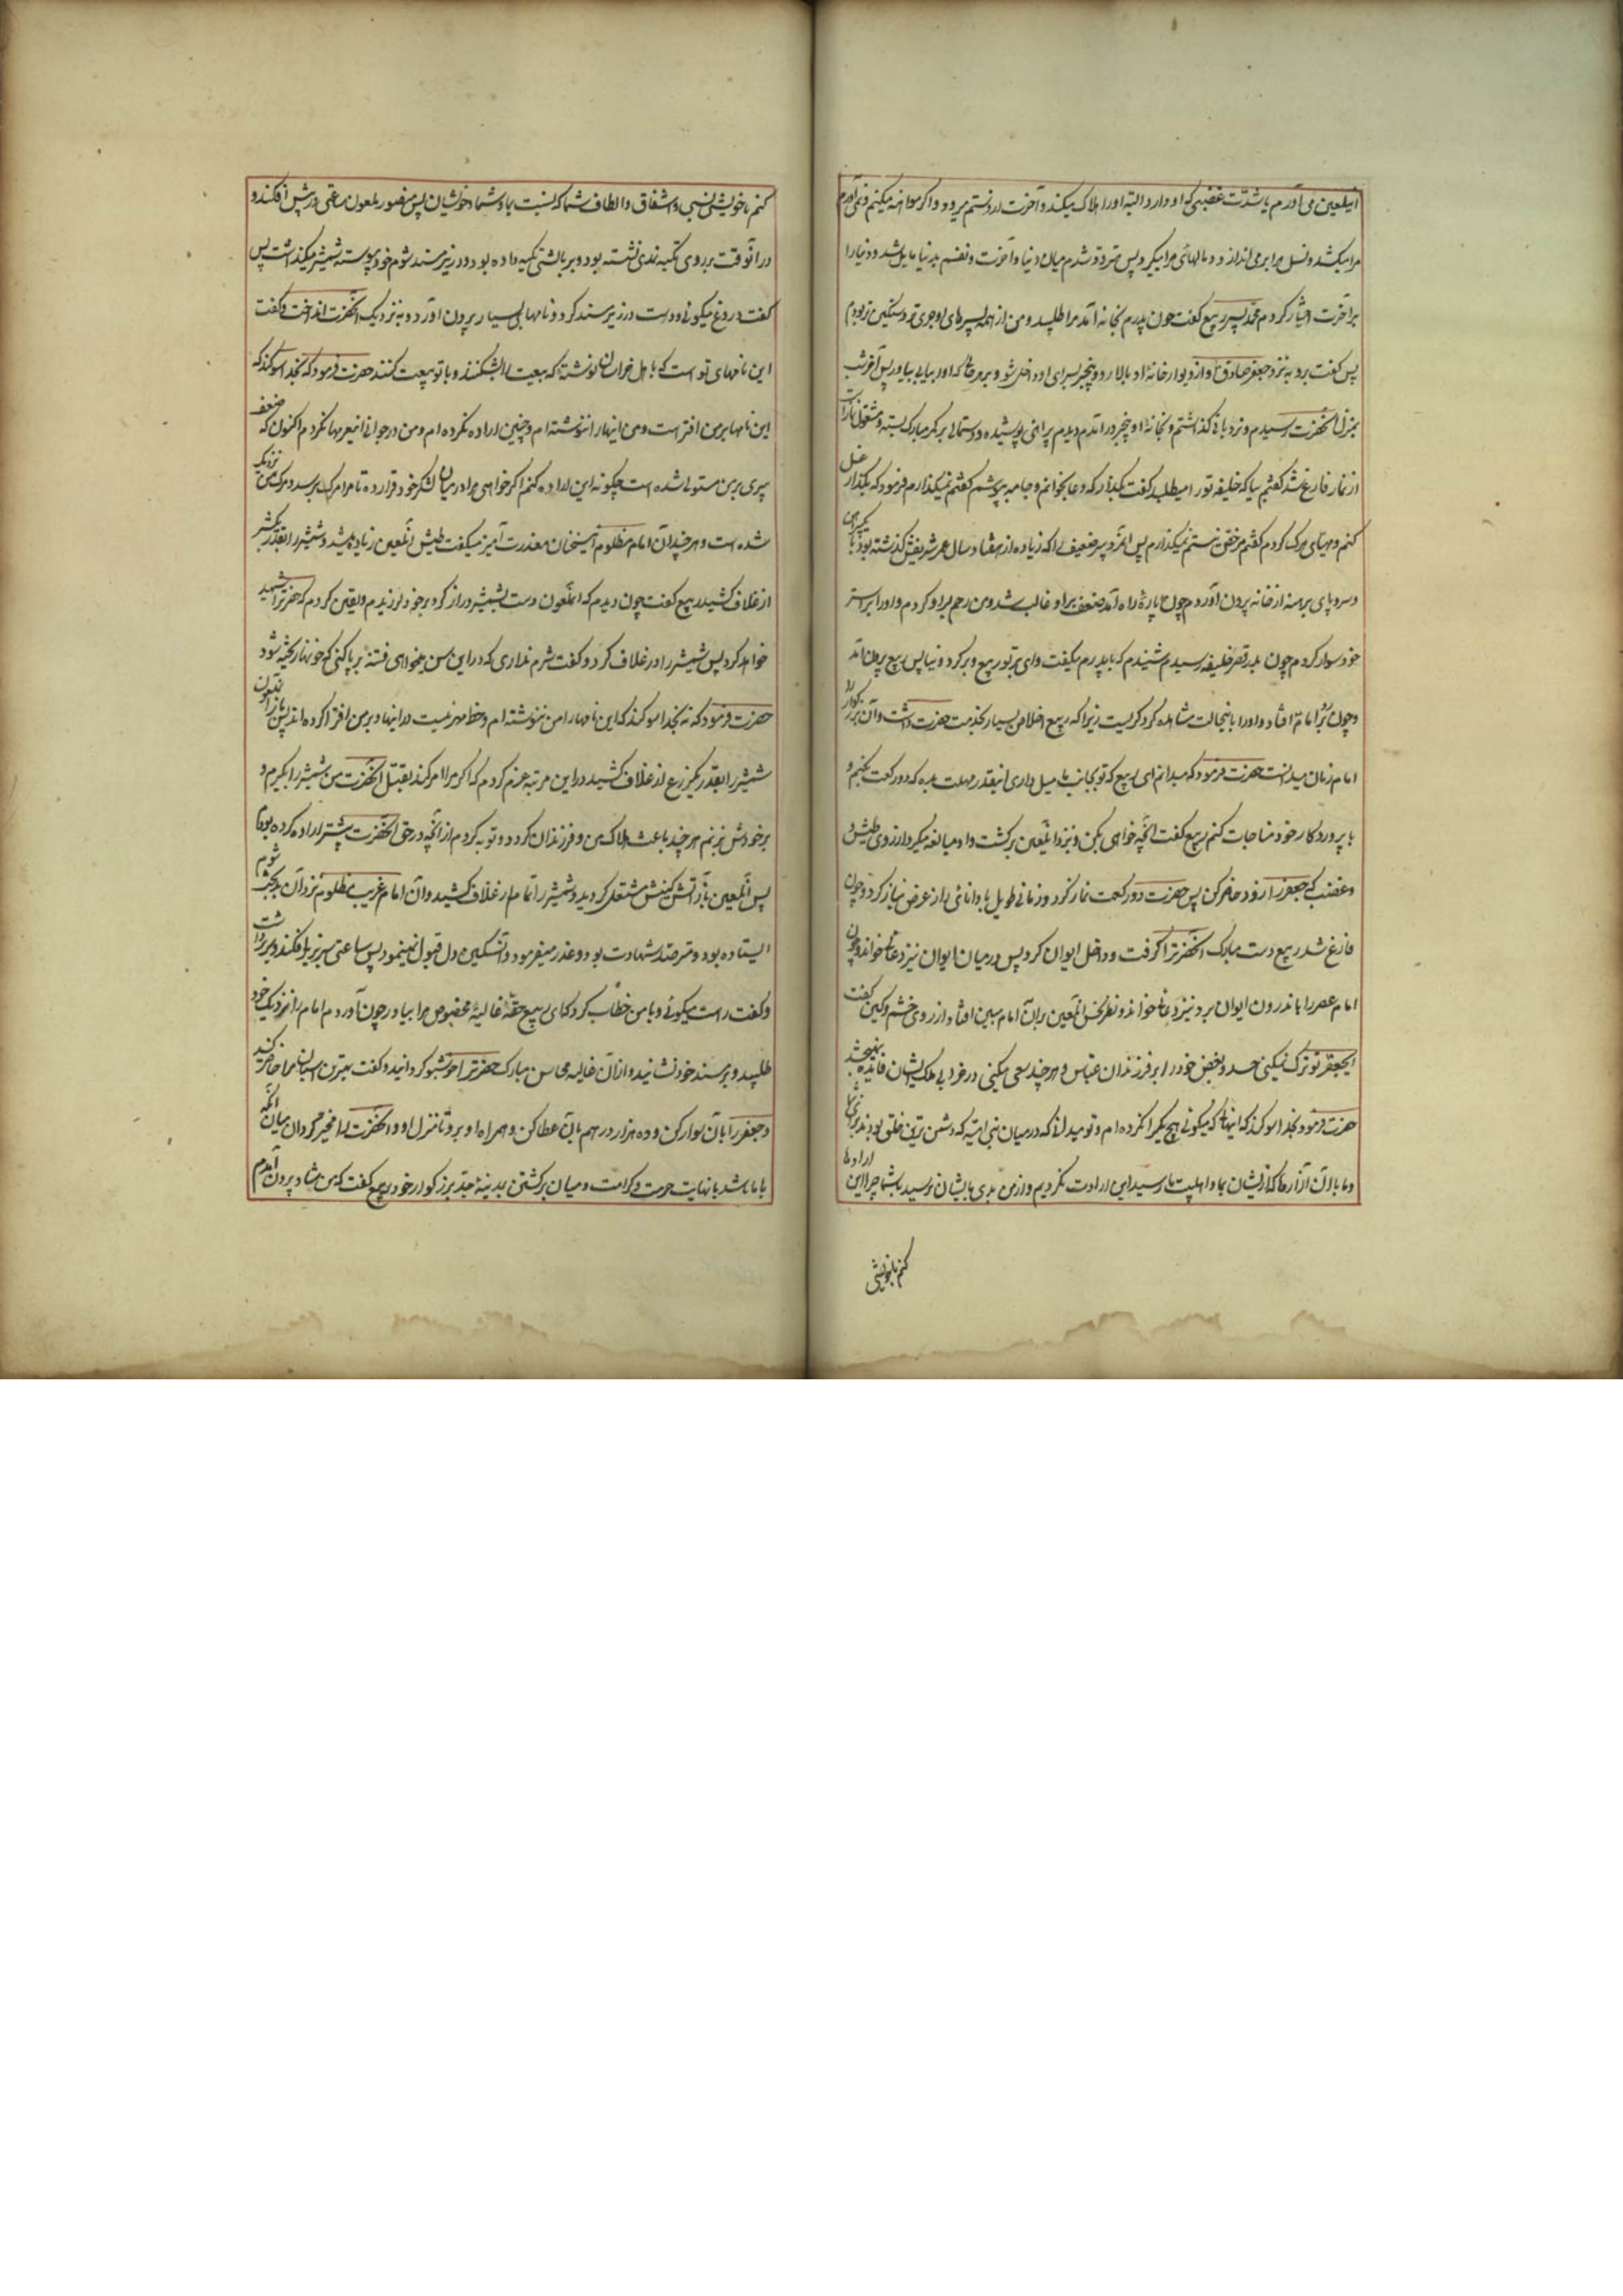 اینلعین می آورم باشدت غضبی که او دارد البته اورا هلاک میکند و آخرت از دستم میرود و اگر مداهنه میکنم و نمی آورم
مرا میکشد و نسل مرا بر می اندازد و مالهای مرا میگیرد پس متردد شدم میان دنیا و آخرت و نفسم بدنیا مایل شد و دنیا را
بر آخرت اختیار کردم محمد پسر ربیع گفت چون پدرم بخانه آمد مرا طلبید و من از همه پسرهای او جری تر و سنگین تر بودم
پس گفت برو به نزد جعفر صادق و از دیوار خانه او بالا رو و بیخبر بسرای او داخل شو و بر هر حالی که اورا بیابی بیاور پس آخر شب
بمنزل آنحضرت رسیدم و نردبانی گذاشتم و بخانه او بیخبر درآمدم دیدم پیراهنی پوشیده و دستمالی بر کمر مبارک بسته و مشغول نمازاست
از نماز فارغ شد گفتم بیا که خلیفه تورا میطلبد گفت بگذار که دعا بخوانم و جامه بپوشم گفتم نمیگذارم فرمود که بگذار غسل
کنم و مهیای مرگ گردم گفتم مرخص نیستم نمیگذارم پس آنمرد پیر ضعیف را که زیاده از هفتاد سال عمر شریفش گذشته بود با یکپیراهن
و سر و پای برهنه از خانه بیرون آوردم چون پاره راه آمد ضعف بر او غالب شد و من رحم بر او کردم و اورا بر استر
خود سوار کردم چون بدر قصر خلیفه رسیدم شنیدم که با پدرم میگفت وای بر تو ربیع دیر کرد و نیامد پس ربیع بیرون آمد
و چون نظرش بر امام افتاد و اورا باینحالت مشاهده کرد گریست زیرا که ربیع اخلاص بسیار بخدمت حضرت داشت و آن بزرگوار را
امام زمان میدانست حضرت فرمود که میدانم ای ربیع که تو بجانب ما میل داری اینقدر مهلت بده که دو رکعت نماز بکنم و
با پروردگار خود مناجات کنم ربیع گفت آنچه خواهی بکن و بنزد آنلعین برگشت و او مبالغه میکرد از روی طیش و
و غضب که جعفر را زود حاضر کن پس حضرت دو رکعت نماز کرد و زمانی طویل با دانای راز عرض نیاز کرد و چون
فارغ شد ربیع دست مبارک آنحضرترا گرفت و داخل ایوان کرد پس در میان ایوان نیز دعائی خواند و چون
امام عصر را باندرون ایوان برد نیز دعائی خواند و نظر نحس آنلعین بر آن امام مبین افتاد از روی خشم و کین گفت
ایجعفر تو ترک نمیکنی حسد و بغض خود را بر فرزندان عباس و هر چند سعی میکنی در خرابی ملک ایشان فایده نمیبخشد
حضرت فرمود بخدا سوگند که اینها که میگوئی هیچ یکرا نکرده ام و تو میدانی که در میان بنی امیه که دشمن ترین خلق بودند برای ما
و ما با آن آزارها که از ایشان بما و اهلبیت ما رسید این ارادت نکردیم و از من بدی بایشان نرسید با شما چرا این ارادها
کنم با خویشی
کنم با خویشی نسبی و اشفاق و الطاف شما که نسبت بما و شما و خویشان پس منصور ملعون ساعتی سر در پیش افکند و
در آنوقت بر روی تکیه نمدی نشسته بود و بر بالشی تکیه داده بود و در زیر مسند شوم خود پیوسته شمشیر میگذاشت پس
گفت دروغ میگوئی و دست در زیر مسند کرد و نامهای بسیار بیرون آورد و به نزدیک آنحضرت انداخت و گفت
این نامهای تو است که باهل خراسان نوشته که بیعت مرا بشکنند و با تو بیعت کنند حضرت فرمود که بخدا سوگند که
این نامها بر من افترا است و من اینها را ننوشته ام و چنین اراده نکرده ام و من در جوانی اینعزمها نکردم اکنون که ضعف
پیری بر من مستولی شده است چگونه این اراده کنم اگر خواهی مرا در میان لشکر خود قرار ده تا مرا مرگ برسد و مرگ من نزدیک
شده است و هر چند آن امام مظلوم اینسخنان معذرت آمیز میگفت طیش آنلعین زیاده میشد و شمشیر را بقدر یکشبر
از غلاف کشید ربیع گفت چون دیدم که آنملعون دست بشمشیر دراز کرد بر خود لرزیدم و یقین کردم که حضرترا شهید
خواهد کرد پس شمشیر را در غلاف کرد و گفت شرم نداری که در این سن میخواهی فتنه بر پا کنی که خونها ریخته شود
حضرت فرمود که نه بخدا سوگند که این نامها را من ننوشته ام و خط و مهر من نیست در اینها و بر من افترا کرده اند پس باز آنملعون
شمشیر را بقدر یکذرع از غلاف کشید در این مرتبه عزم کردم که اگر مرا امر کند بقتل آنحضرت من شمشیر را بگیرم و
بر خودش بزنم هر چند باعث هلاک من و فرزندان گردد و توبه کردم از آنچه در حق آنحضرت پیشتر اراده کرده بودم
پس آنلعین باز آتش کینش مشتعل گردید و شمشیر را تمام از غلاف کشید و آن امام غریب مظلوم نزد آن بدبخت شوم
ایستاده بود و مترصد شهادت بود و عذر میفرمود و آن سنگین دل قبول نمینمود پس ساعتی سر بزیر افکند و سر برداشت
و گفت راست میگوئی و با من خطاب کرد که ای ربیع حقه غالیه مخصوص مرا بیاور چون آوردم امام را نزدیک خود
طلبید و بر مسند خود نشانید و از آن غالیه محاسن مبارک حضرترا خوشبو گردانید و گفت بهترین اسبان مرا حاضر کنید
و جعفر را بآن سوار کن و ده هزار درهم بآن عطا کن و همراه او برو تا منزل او و آنحضرت را مخیر گردان میان آنکه
با ما باشد با نهایت حرمت و کرامت و میان برگشتن بمدینه جد بزرگوار خود ربیع گفت که من شاد بیرون آمدم